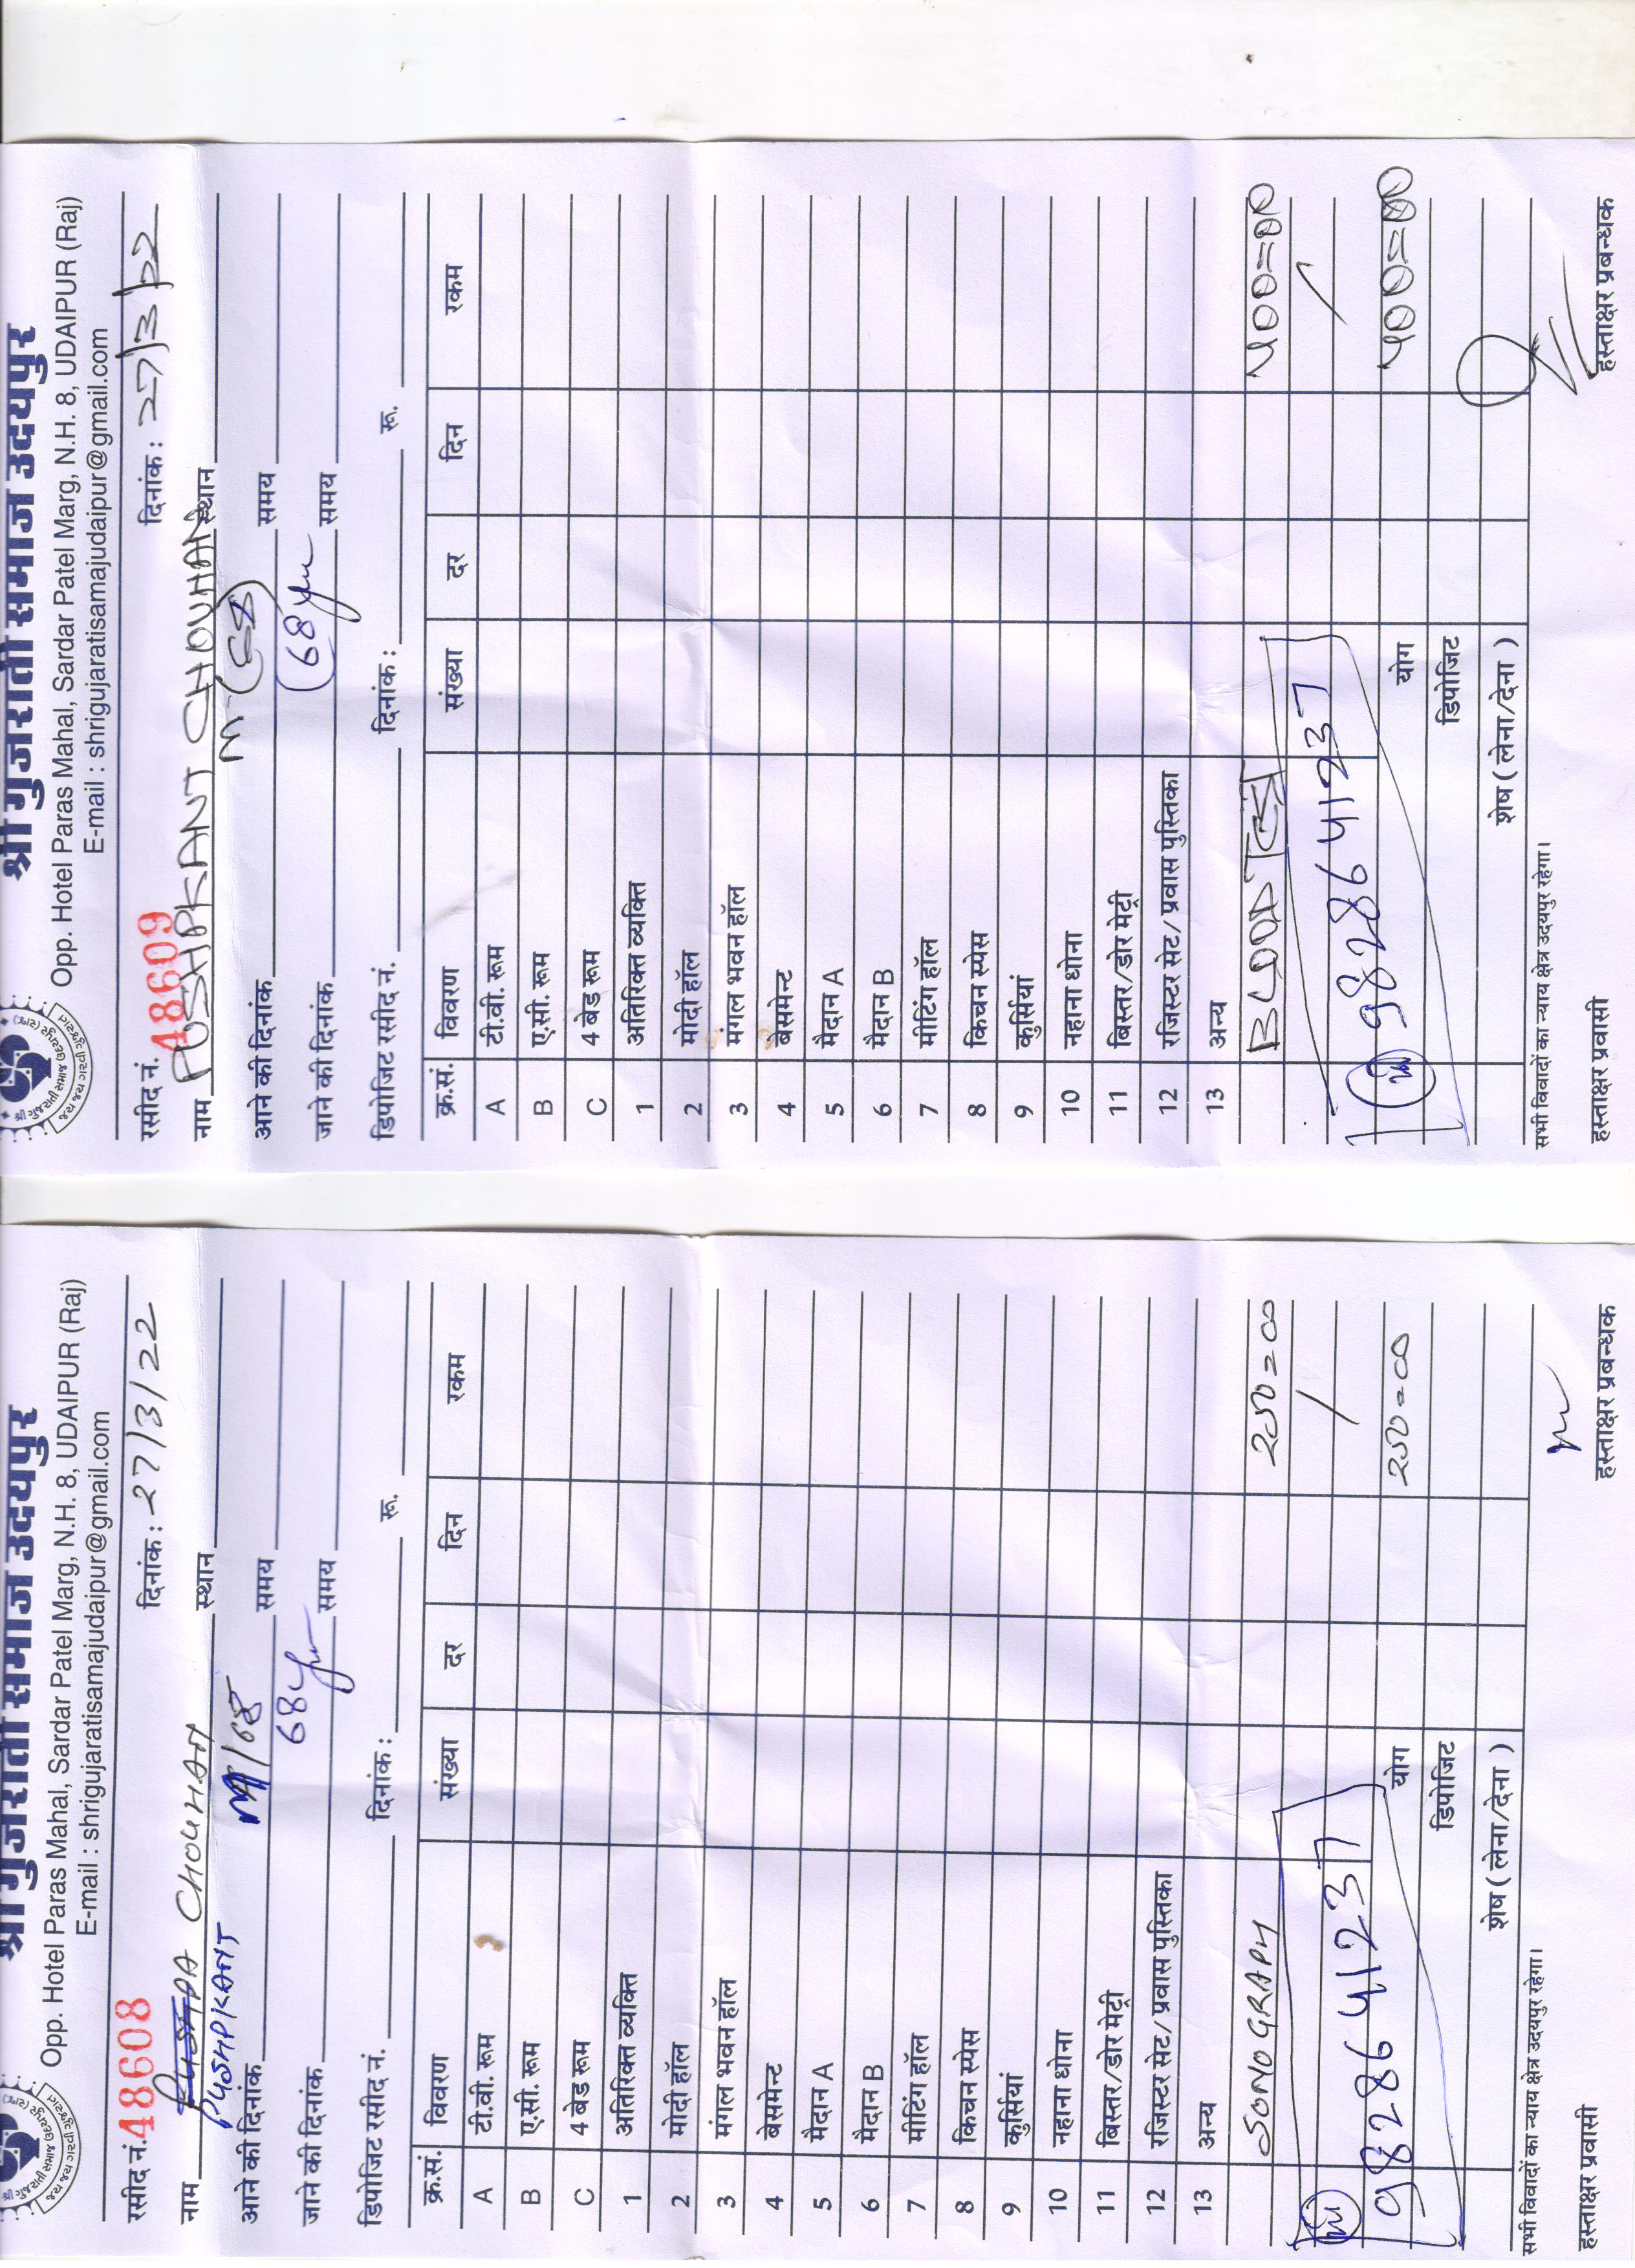 श्री गुजराती समाज उदयपुर
Opp. Hotel Paras Mahal, Sardar Patel Marg, N.H. 8, UDAIPUR (Raj)
E-mail : shrigujaratisamajudaipur@gmail.com
रसीद नं. 48608 दिनांक : 27/3/22
नाम CHOUHAN स्थान
PUSHPKANT
आने की दिनांक M/68 समय
जाने की दिनांक 68 समय
डिपोजिट रसीद नं. दिनांक : रू.
क्र.सं. विवरण संख्या दर दिन रकम
A टी.वी. रूम
B ए.सी. रूम
C 4 बेड रूम
1 अतिरिक्त व्यक्ति
2 मोदी हॉल
3 मंगल भवन हॉल
4 बेसमेन्ट
5 मैदान A
6 मैदान B
7 मीटिंग हॉल
8 किचन स्पेस
9 कुर्सियां
10 नहाना धोना
11 बिस्तर/डोर मेट्री
12 रजिस्टर सेट/ प्रवास पुस्तिका
13 अन्य
SONOGRAPHY 200=00
9828641237
योग 200=00
डिपोजिट
शेष ( लेना/देना )
सभी विवादों का न्याय क्षेत्र उदयपुर रहेगा।
हस्ताक्षर प्रवासी हस्ताक्षर प्रबन्धक
श्री गुजराती समाज उदयपुर
Opp. Hotel Paras Mahal, Sardar Patel Marg, N.H. 8, UDAIPUR (Raj)
E-mail : shrigujaratisamajudaipur@gmail.com
रसीद नं. 48609 दिनांक : 27/3/22
नाम PUSHPKANT CHOUHAN स्थान
आने की दिनांक M समय
जाने की दिनांक (68 समय
डिपोजिट रसीद नं. दिनांक : रू.
क्र.सं. विवरण संख्या दर दिन रकम
A टी.वी. रूम
B ए.सी. रूम
C 4 बेड रूम
1 अतिरिक्त व्यक्ति
2 मोदी हॉल
3 मंगल भवन हॉल
4 बेसमेन्ट
5 मैदान A
6 मैदान B
7 मीटिंग हॉल
8 किचन स्पेस
9 कुर्सियां
10 नहाना धोना
11 बिस्तर/डोर मेट्री
12 रजिस्टर सेट/ प्रवास पुस्तिका
13 अन्य
BLOOD 400=00
9828641237
योग 400=00
डिपोजिट
शेष ( लेना/देना )
सभी विवादों का न्याय क्षेत्र उदयपुर रहेगा।
हस्ताक्षर प्रवासी हस्ताक्षर प्रबन्धक